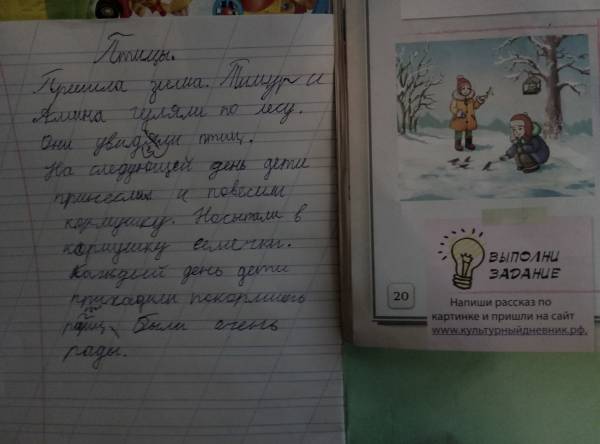 Птицы.
Пришла зима. Тимур и
Амина гуляли по лесу.
Они увидели птиц.
На следующей день дети
принесли и повесили
кормушку. Насыпали в
кормушку семечки.
Каждый день дети
приходили покормить
птиц. Были очень
рады.
20
ВЫПОЛНИ
ЗАДАНИЕ
Напиши рассказ по
картинке и пришли на сайт
www.культурныйдневник.рф.